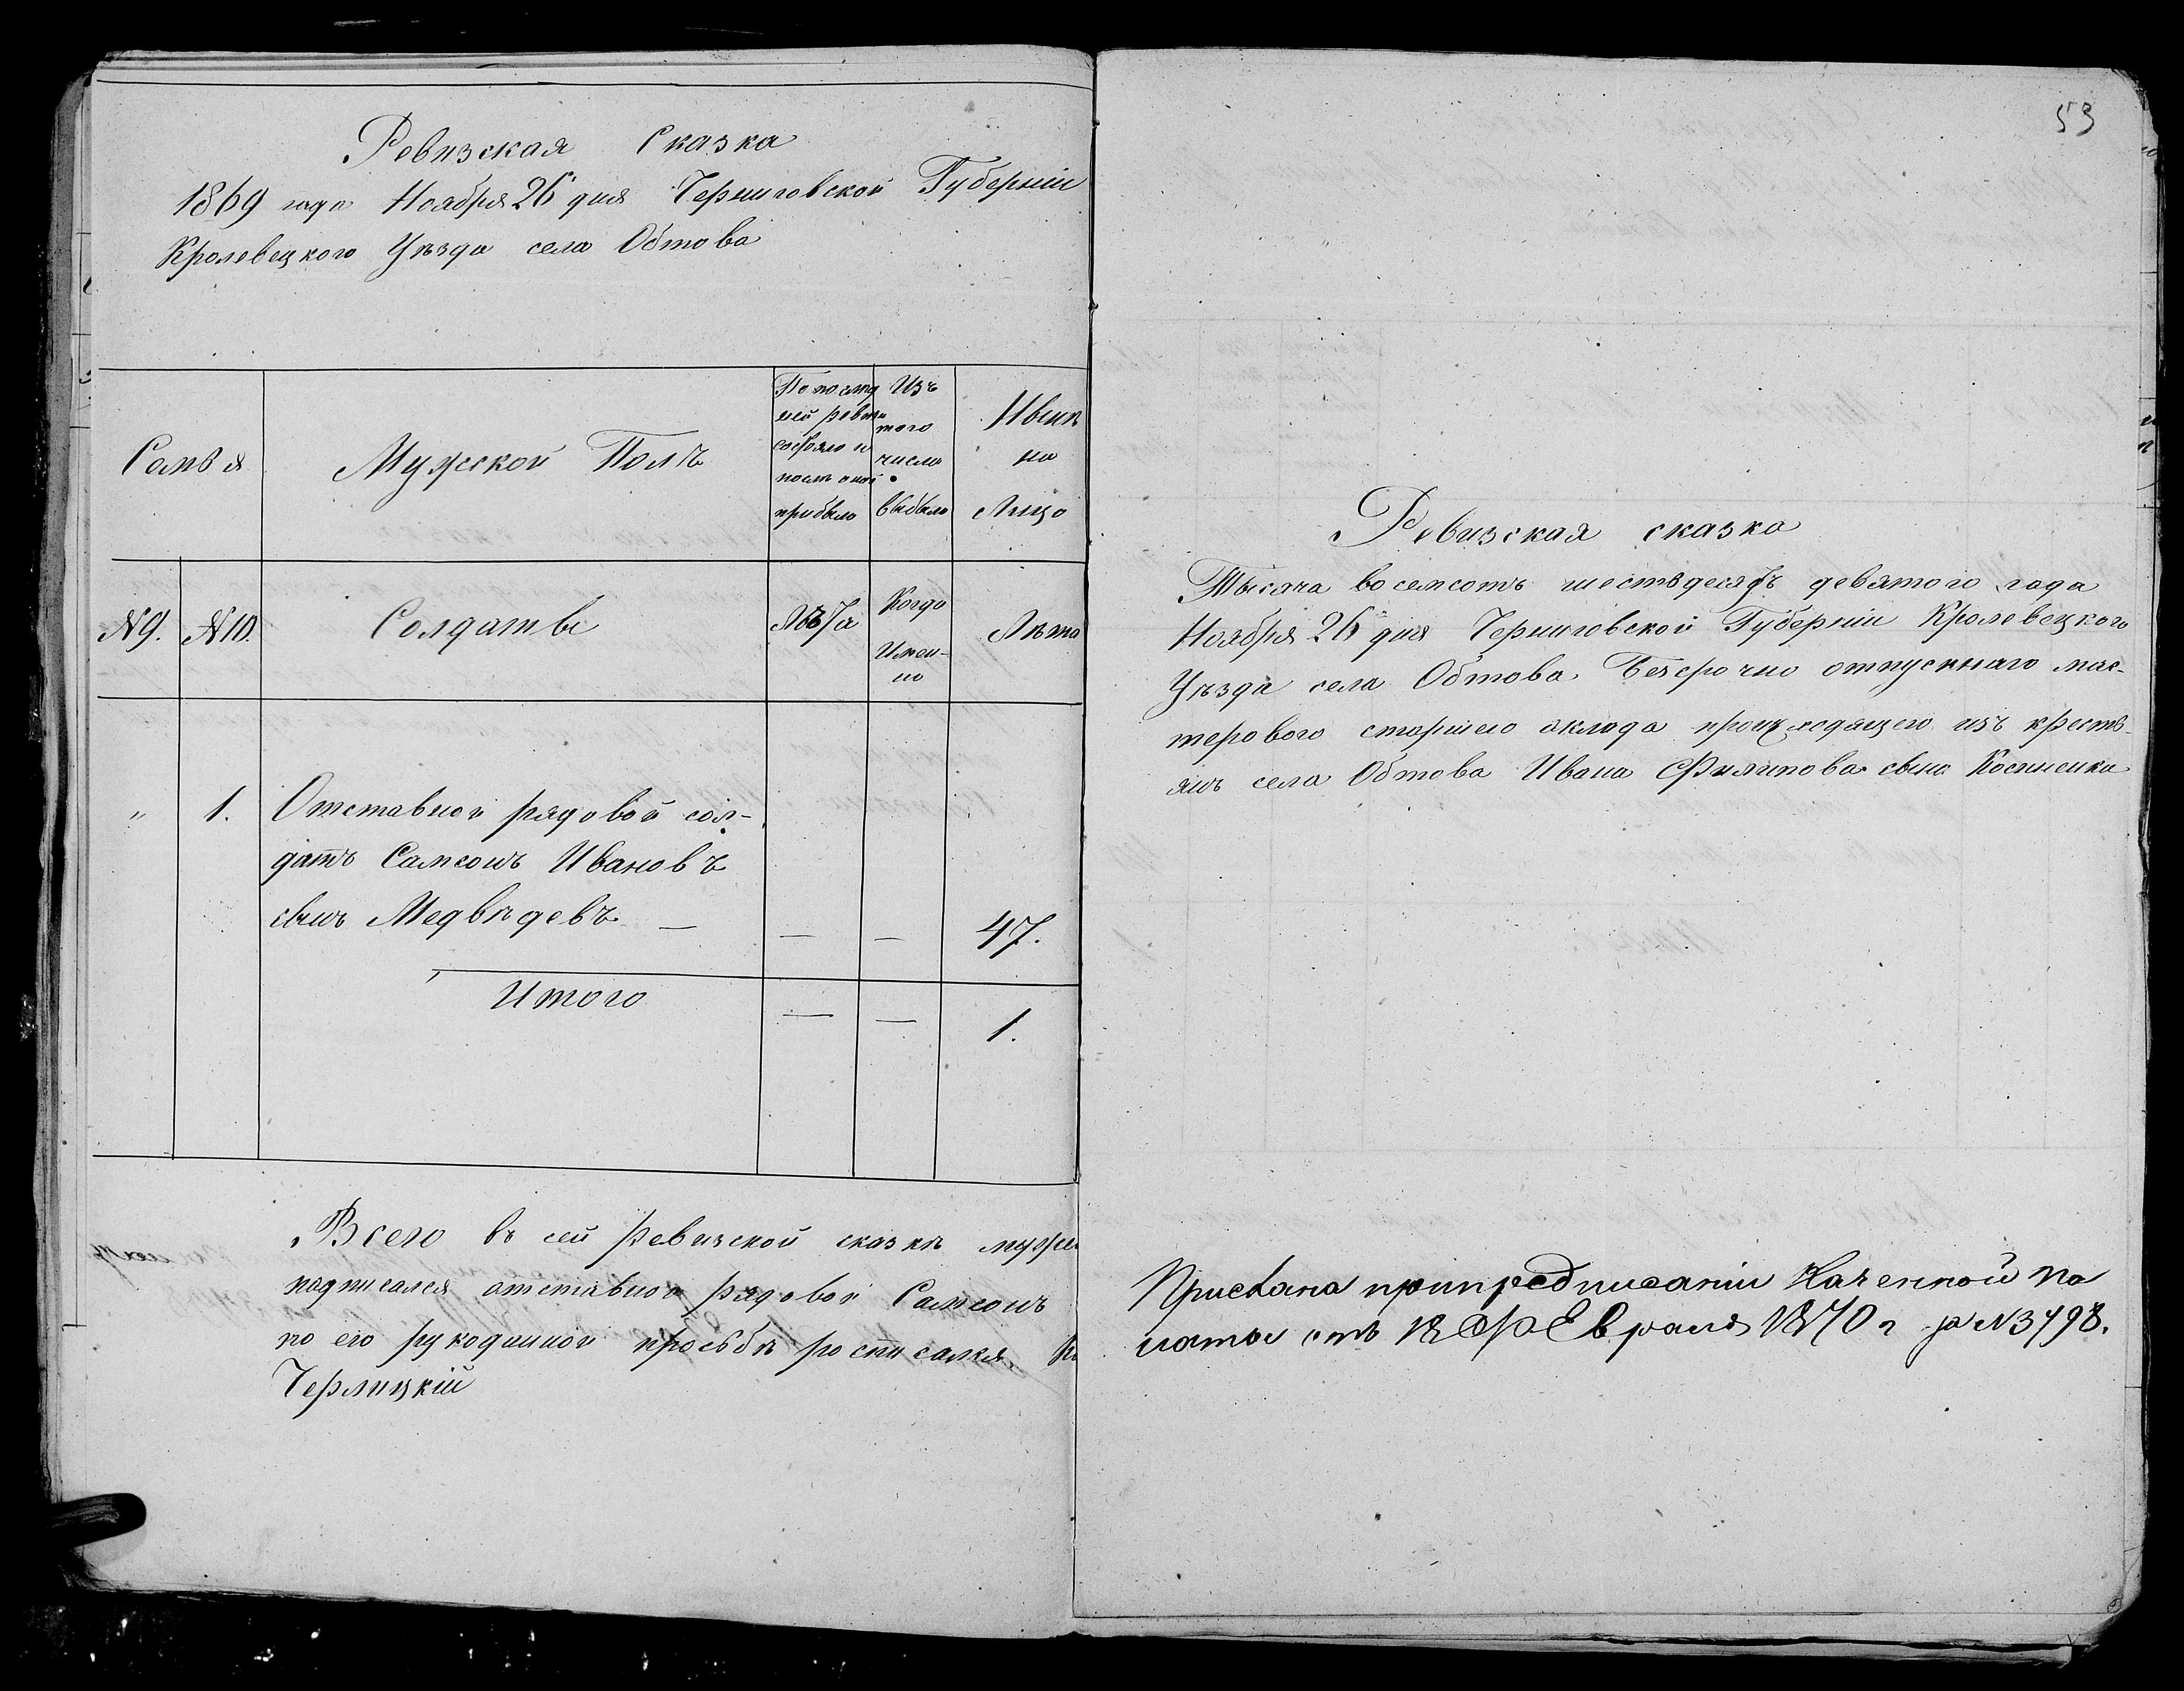 Ревизская Сказка
1869 года Ноября 26 дня Черниговской Губерніи
Кролевецкого Уѣзда села Обтова
Семья
Мужеской Полъ
По послѣд
ней ревизіи
состояло и
послѣ оной
прибыло
Изъ
того
числа
выбыло
Нынѣ
на
Лицо
N 9.
N 10.
Солдаты
Лѣта
Когда
Имен-
но
Лѣта
" 1. Отставной рядовой сол-
датъ Самсонъ Ивановъ
сынъ Медвѣдевъ — — — 47.
Итого — — 1.
Всего въ сей ревизской сказкѣ муже
подписался отставной рядовой Самсонъ
по его рукоданной просьбѣ росписался
Черлицкій
53
Ревизская сказка
Тысяча восемсотъ шестьдесятъ девятого года
Ноября 26 дня Черниговской Губерніи Кролевецкого
Уѣзда села Обтова Безсрочно отпускнаго мас-
терового старшего оклада происходящего изъ кресть-
янъ села Обтова Ивана Филипова сына Косиненка
Прислана при предписаніи Казенной Па
латы отъ 18 Февраля 1870 г за N 3498.